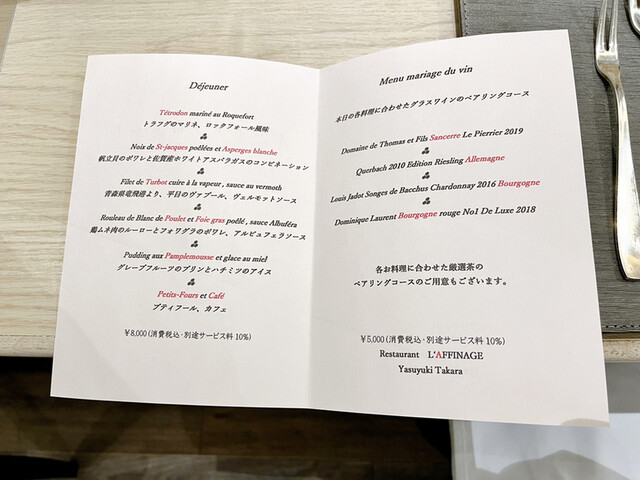 Déjeuner
Tétrodon mariné au Roquefort
トラフグのマリネ、ロックフォール風味
Noix de St-jacques poêlées et Asperges blanche
帆立貝のポワレと佐賀産ホワイトアスパラガスのコンビネーション
Filet de Turbot cuire à la vapeur , sauce au vermoth
青森県竜飛港より、平目のヴァプール、ヴェルモットソース
Rouleau de Blanc de Poulet et Foie gras poêlé , sauce Albuféra
鶏ムネ肉のルーローとフォワグラのポワレ、アルビュフェラソース
Pudding aux Pamplemousse et glace au miel
グレープフルーツのプリンとハチミツのアイス
Petits-Fours et Café
プティフール、カフェ
￥8,000 (消費税込・別途サービス料 10%)
Menu mariage du vin
本日の各料理に合わせたグラスワインのペアリングコース
Domaine de Thomas et Fils Sancerre Le Pierrier 2019
Querbach 2010 Edition Riesling Allemagne
Louis Jadot Songes de Bacchus Chardonnay 2016 Bourgogne
Dominique Laurent Bourgogne rouge No1 De Luxe 2018
各お料理に合わせた厳選茶の
ペアリングコースのご用意もございます。
￥5,000 (消費税込・別途サービス料 10%)
Restaurant L'AFFINAGE
Yasuyuki Takara